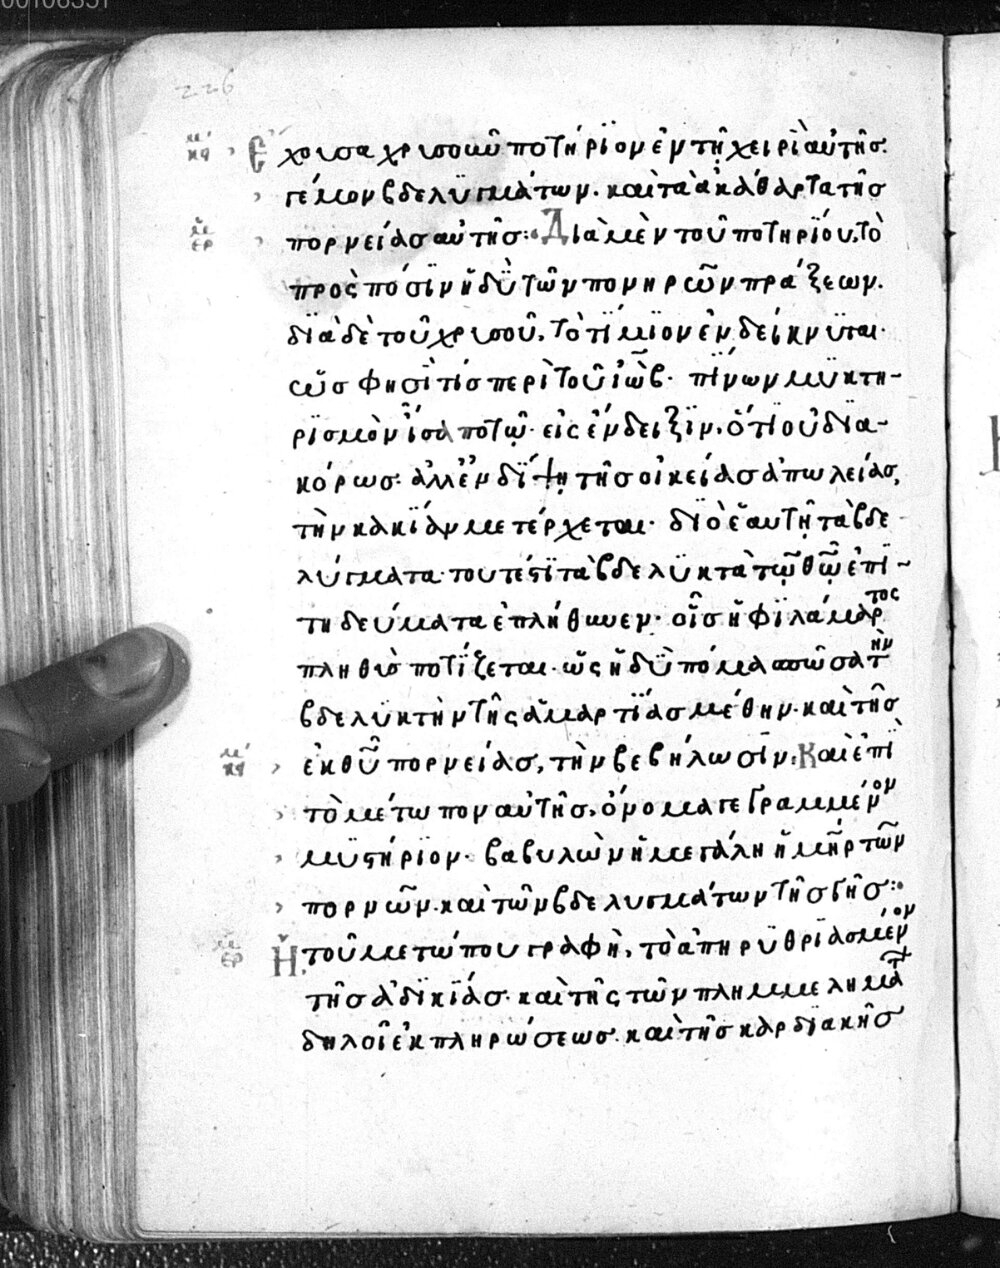 226
κείμενον Ἔχουσα χρυσοῦν ποτήριον ἐν τῇ χειρὶ αὐτῆς.
γέμον βδελϋγμάτων. καὶ τὰ ἀκάθαρτα τῆς
ἑρ πορνείας αὐτῆς: Διὰ μὲν τοῦ ποτηρίου, τὸ
πρὸς πόσϊν ἡδὺ τῶν πονηρῶν πράξεων.
δϊὰ δὲ τοῦ χρυσοῦ, τὸ τίμϊον ἐνδείκνϋται.
ὥς φησί τίς περὶ τοῦ ἰὼβ. πίνων μϋκτη-
ρϊσμὸν ἶσα ποτῷ. εἰς ἔνδειξϊν, ὅτϊ οὐ δϊα-
κόρως. ἀλλ' ἐν δίψῃ τῆς οἰκείας ἀπωλείας,
τὴν κακίαν μετέρχεται. δϊὸ ἑαυτῇ τὰ βδε
λύγματα. τουτέστϊ τὰ βδελϋκτὰ τῷ θῷ ἐπϊ-
τηδεύματα ἐπλήθυνεν. οἷς ἡ φϊλαμάρτος
πληθὺς ποτίζεται. ὡς ἡδὺ πόμα σπῶσα τὴν
βδελϋκτὴν τῆς ἁμαρτίας μέθην. καὶ τῆς
ἐκ θῦ πορνείας, τὴν βεβήλωσϊν. Καὶ ἐπὶ
τὸ μέτωπον αὐτῆς, ὄνομα γεγραμμένον
μϋστήρϊον. βαβυλὼν ἡ μεγάλη ἡ μῆρ τῶν
πορνῶν. καὶ τῶν βδελυγμάτων τῆς γῆς:
ἑρ Ἡ τοῦ μετώπου γραφὴ, τὸ ἀπηρϋθρϊασμένον
τῆς ἀδϊκίας. καὶ τῆς τῶν πλημμελημάτ
δηλοῖ ἐκπληρώσεως. καὶ τῆς καρδϊακῆς